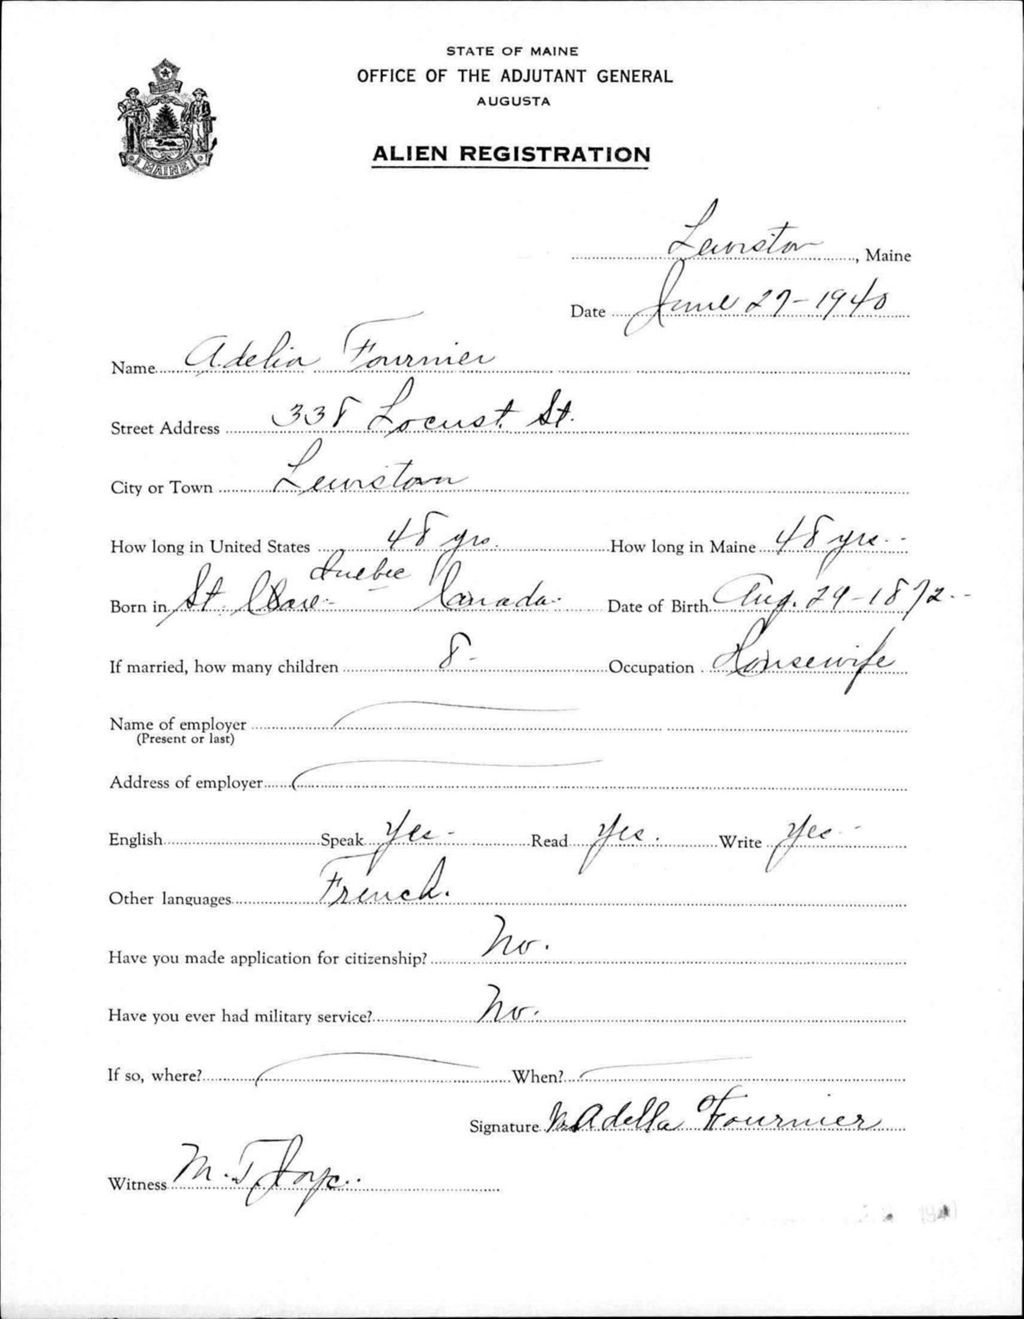 STATE OF MAINE
OFFICE OF THE ADJUTANT GENERAL
AUGUSTA
MAINE
ALIEN REGISTRATION
Lewiston, Maine
Date June 27-1940
Name Adelia Fournier
Street Address 338 Locust St.
City or Town Lewiston
How long in United States 48 yrs. How long in Maine 48 yrs.
Quebec
Born in St. Clare - Canada - Date of Birth Aug. 29-1872-
If married, how many children 8- Occupation Housewife
Name of employer
(Present or last)
Address of employer
English Speak Yes - Read Yes. Write Yes -
Other languages French.
Have you made application for citizenship? No.
Have you ever had military service? No.
If so, where? When?
Signature Adella Fournier
Witness M. T. Joyce